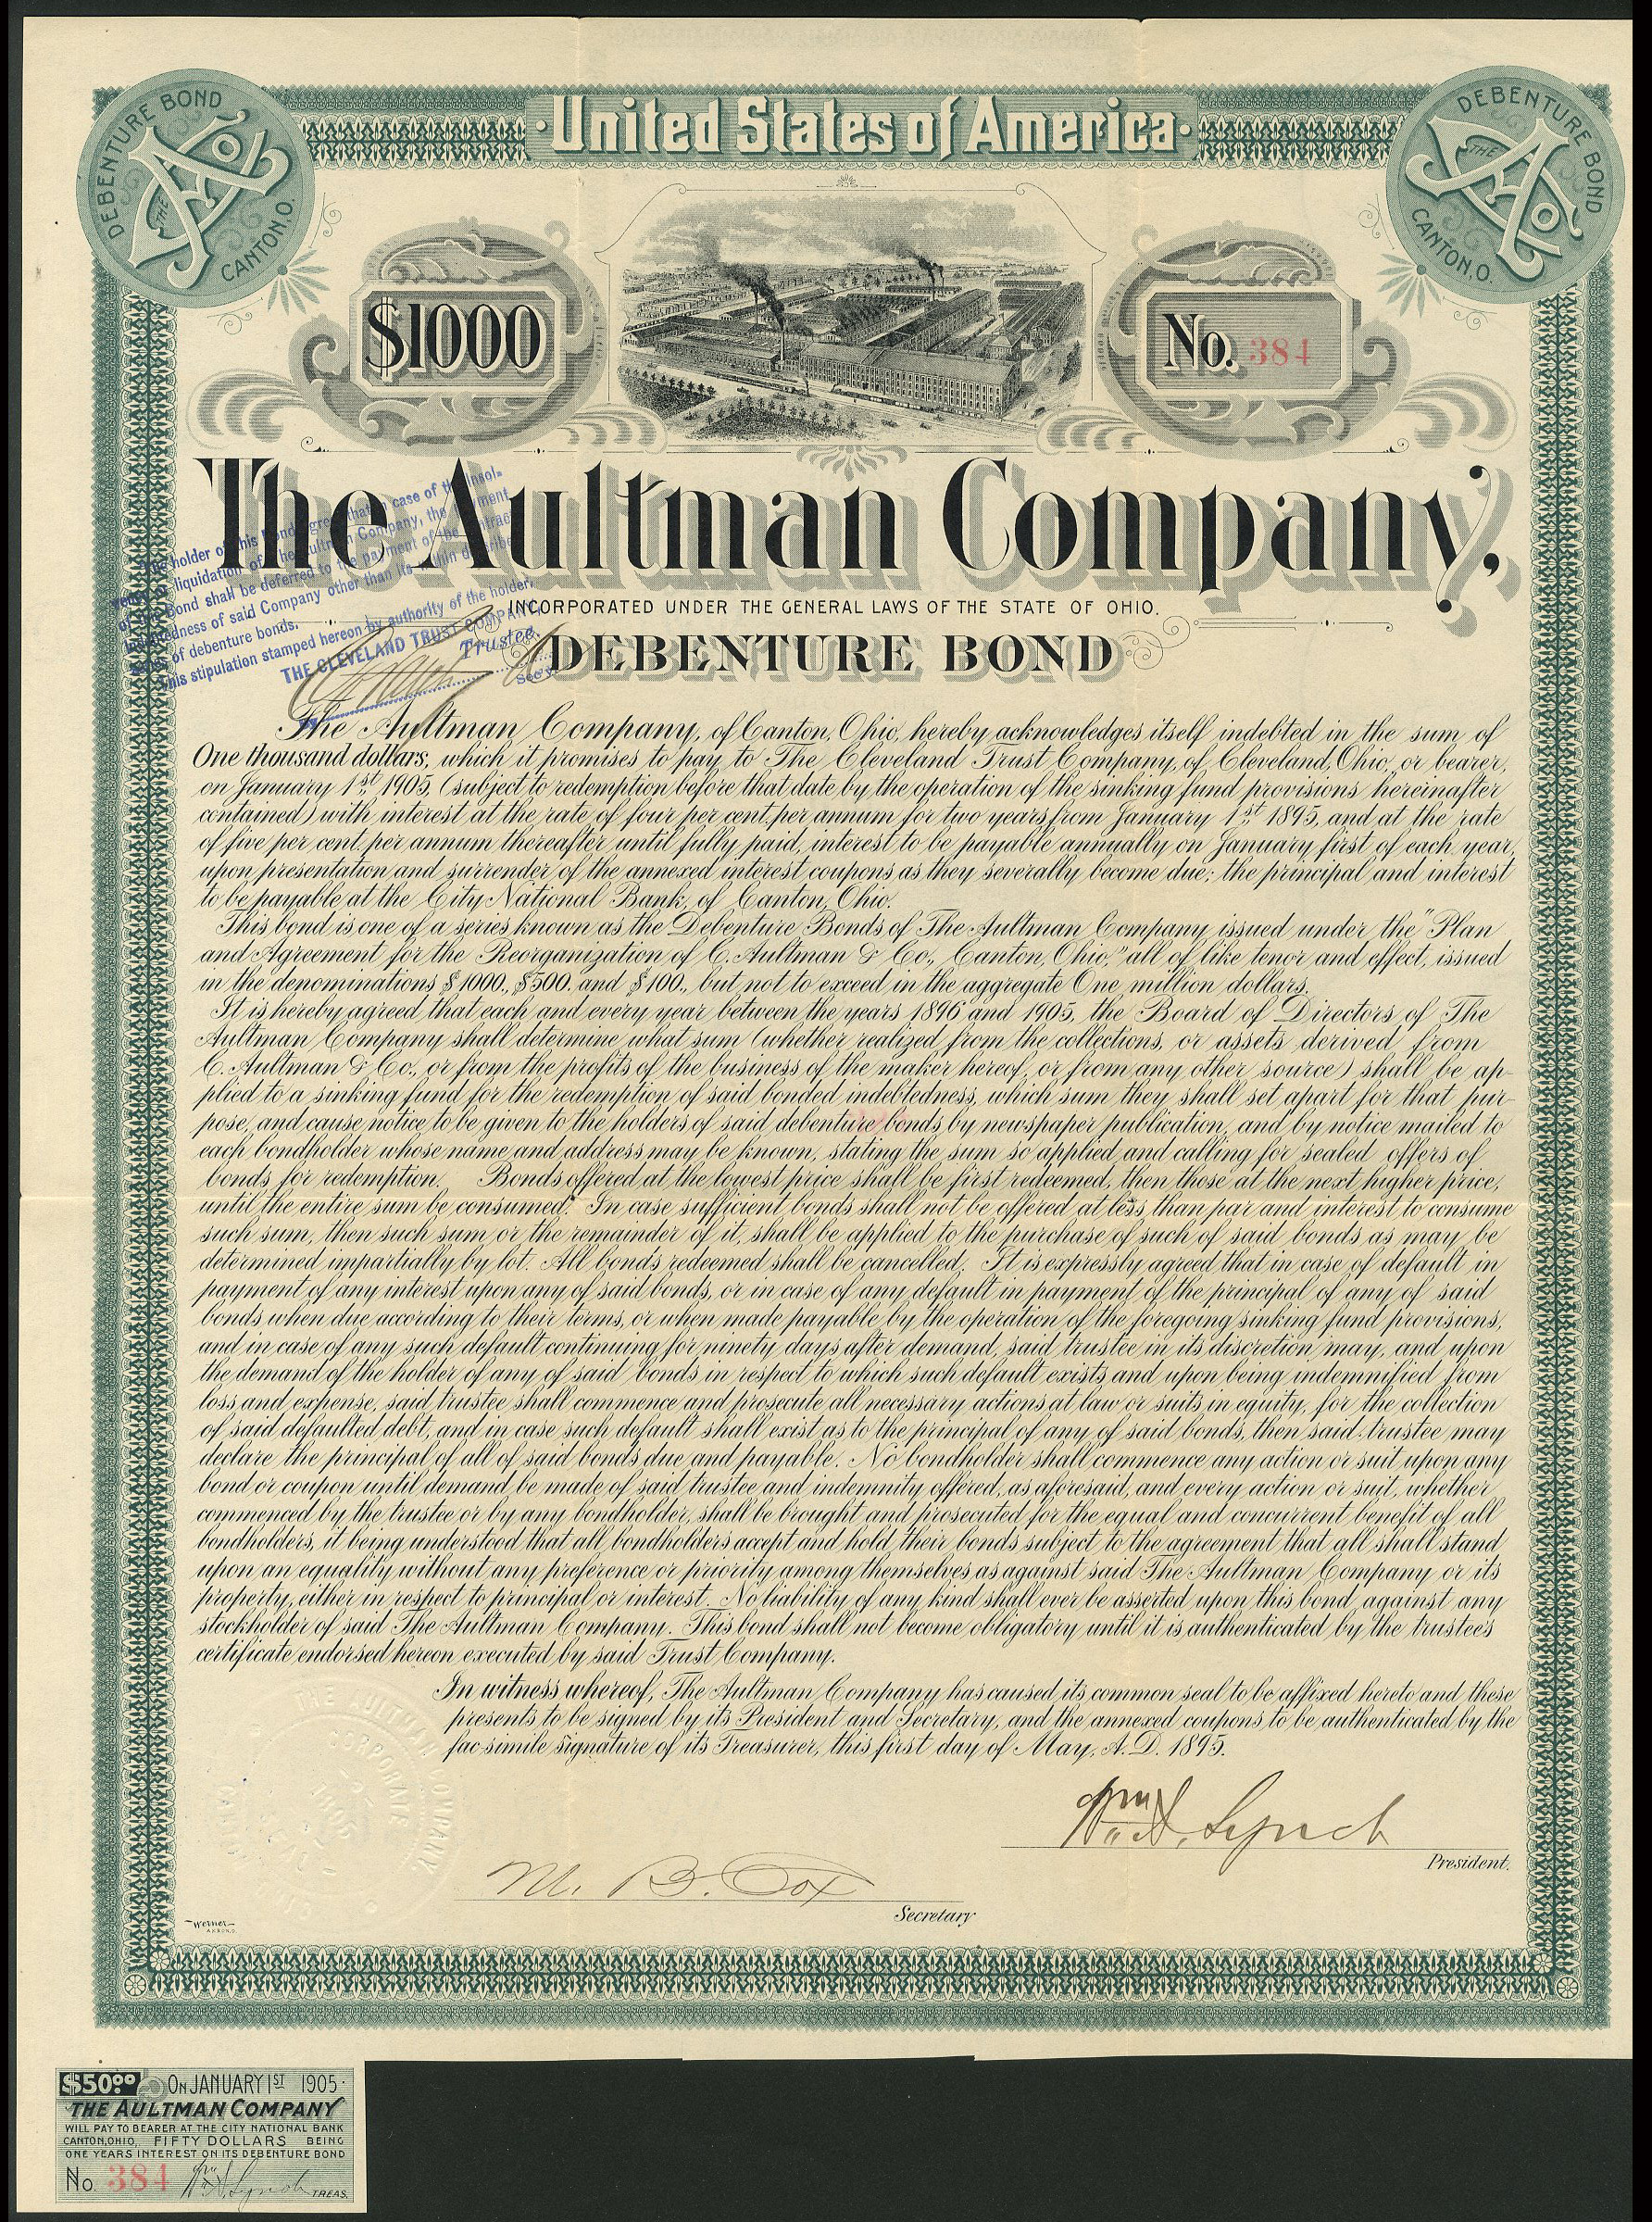 United States of America
DEBENTURE BOND
THE A Co
CANTON, O.
DEBENTURE BOND
THE A Co
CANTON, O.
$1000
No. 384
The Aultman Company,
holder of this Bond agrees that in case of the insol-
liquidation of The Aultman Company, the payment
Bond shall be deferred to the payment of the
of said Company other than its within
of debenture bonds.
This stipulation stamped hereon by authority of the holder.
THE CLEVELAND TRUST COMPANY,
Trustee.
Sec'y
INCORPORATED UNDER THE GENERAL LAWS OF THE STATE OF OHIO.
DEBENTURE BOND
The Aultman Company, of Canton, Ohio, hereby acknowledges itself indebted in the sum of
One thousand dollars, which it promises to pay to The Cleveland Trust Company, of Cleveland, Ohio, or bearer,
on January 1st 1905, (subject to redemption before that date by the operation of the sinking fund provisions hereinafter
contained) with interest at the rate of four per cent. per annum for two years from January 1st 1895, and at the rate
of five per cent. per annum thereafter until fully paid, interest to be payable annually on January first of each year,
upon presentation and surrender of the annexed interest coupons as they severally become due; the principal and interest
to be payable at the City National Bank, of Canton, Ohio.
This bond is one of a series known as the Debenture Bonds of The Aultman Company issued under the "Plan
and Agreement for the Reorganization of C. Aultman & Co., Canton, Ohio," all of like tenor and effect, issued
in the denominations $1000., $500. and $100., but not to exceed in the aggregate One million dollars.
It is hereby agreed that each and every year between the years 1896 and 1905, the Board of Directors of The
Aultman Company shall determine what sum (whether realized from the collections, or assets derived from
C. Aultman & Co., or from the profits of the business of the maker hereof, or from any other source) shall be ap-
plied to a sinking fund for the redemption of said bonded indebtedness, which sum they shall set apart for that pur-
pose, and cause notice to be given to the holders of said debenture bonds by newspaper publication, and by notice mailed to
each bondholder whose name and address may be known, stating the sum so applied and calling for sealed offers of
bonds for redemption. Bonds offered at the lowest price shall be first redeemed, then those at the next higher price,
until the entire sum be consumed. In case sufficient bonds shall not be offered at less than par and interest to consume
such sum, then such sum or the remainder of it, shall be applied to the purchase of such of said bonds as may be
determined impartially by lot. All bonds redeemed shall be cancelled. It is expressly agreed that in case of default in
payment of any interest upon any of said bonds, or in case of any default in payment of the principal of any of said
bonds when due according to their terms, or when made payable by the operation of the foregoing sinking fund provisions,
and in case of any such default continuing for ninety days after demand, said trustee in its discretion may, and upon
the demand of the holder of any of said bonds in respect to which such default exists and upon being indemnified from
loss and expense, said trustee shall commence and prosecute all necessary actions at law or suits in equity, for the collection
of said defaulted debt, and in case such default shall exist as to the principal of any of said bonds, then said trustee may
declare the principal of all of said bonds due and payable. No bondholder shall commence any action or suit upon any
bond or coupon until demand be made of said trustee and indemnity offered, as aforesaid, and every action or suit, whether
commenced by the trustee or by any bondholder, shall be brought and prosecuted for the equal and concurrent benefit of all
bondholders, it being understood that all bondholders accept and hold their bonds subject to the agreement that all shall stand
upon an equality without any preference or priority among themselves as against said The Aultman Company or its
property, either in respect to principal or interest. No liability of any kind shall ever be asserted upon this bond, against any
stockholder of said The Aultman Company. This bond shall not become obligatory until it is authenticated by the trustee's
certificate endorsed hereon executed by said Trust Company.
In witness whereof, The Aultman Company has caused its common seal to be affixed hereto and these
presents to be signed by its President and Secretary, and the annexed coupons to be authenticated by the
fac-simile signature of its Treasurer, this first day of May, A. D. 1895.
THE AULTMAN COMPANY.
CORPORATE
SEAL
1895
Wm A. Lynch
President.
M. B. Cox
Secretary
Werner
AKRON, O.
$50.00 ON JANUARY 1ST 1905.
THE AULTMAN COMPANY
WILL PAY TO BEARER AT THE CITY NATIONAL BANK
CANTON, OHIO, FIFTY DOLLARS BEING
ONE YEARS INTEREST ON ITS DEBENTURE BOND
No. 384 Wm A. Lynch TREAS.